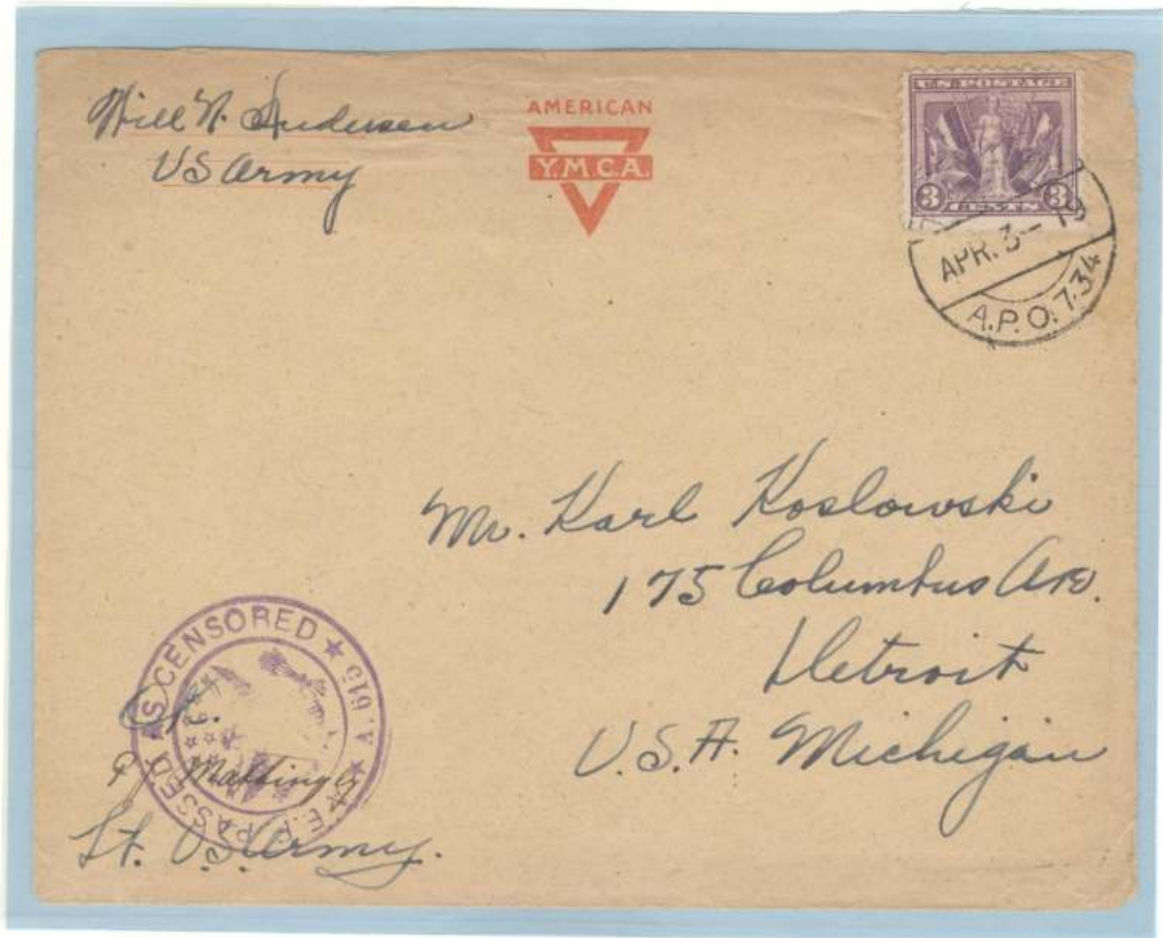 Will N. Andersen
US Army
AMERICAN
Y.M.C.A.
U.S. POSTAGE
3 CENTS 3
APR. 3 - 19
A.P.O. 734
Mr. Karl Koslowski
175 Columbus Ave.
Detroit
U.S.A. Michigan
PASSED AS CENSORED ★ A. 615 ★ A.E.F.
O.K.
P J Mattingly
Lt. US Army.